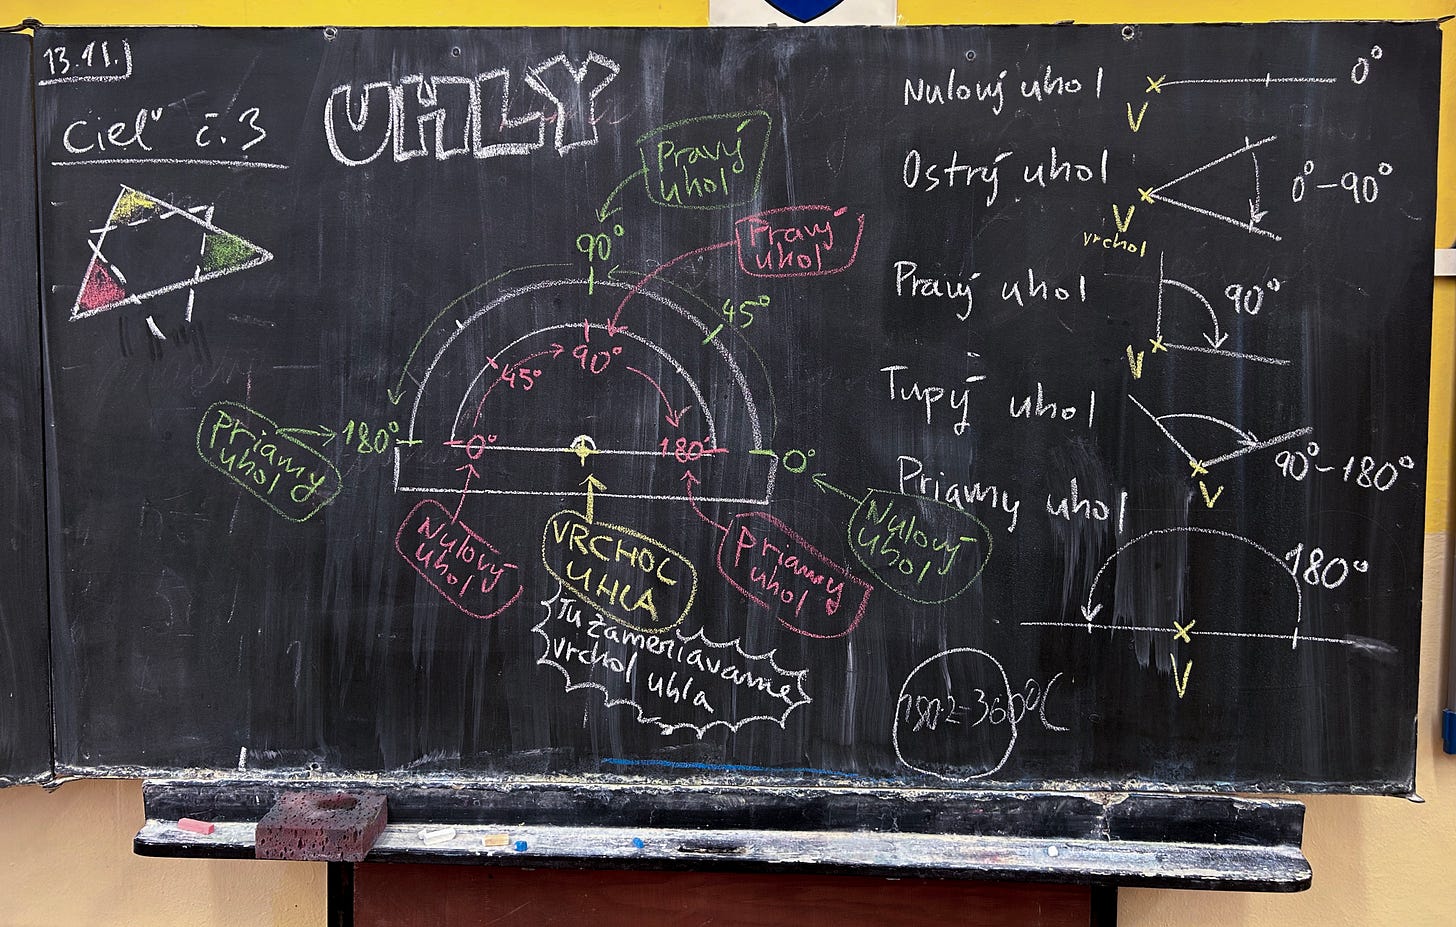 13.11.
Cieľ č.3
UHLY
Pravý
uhol
90°
Pravý
uhol
45°
90°
45°
Priamy
uhol
180°
0°
180°
0°
Nulový
uhol
VRCHOL
UHLA
Priamy
uhol
Nulový
uhol
Tu zameriavame
vrchol uhla
Nulový uhol
V
0°
Ostrý uhol
V
vrchol
0°-90°
Pravý uhol
V
90°
Tupý uhol
V
90°-180°
Priamy uhol
V
180°
180·2=360°C